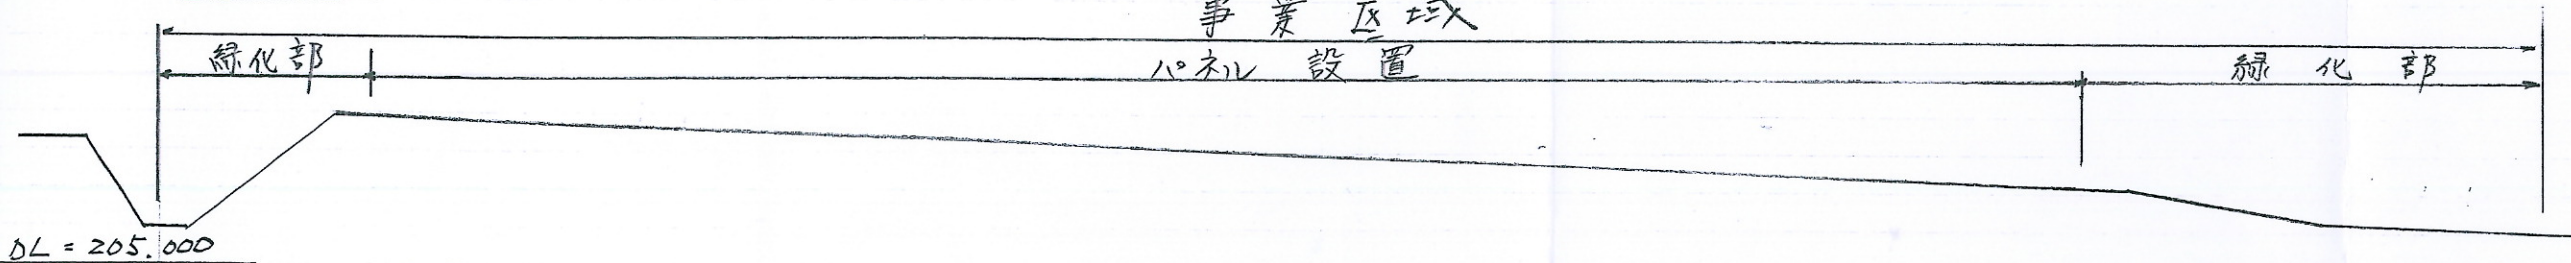 事業区域
緑化部 パネル設置 緑化部
DL = 205.000